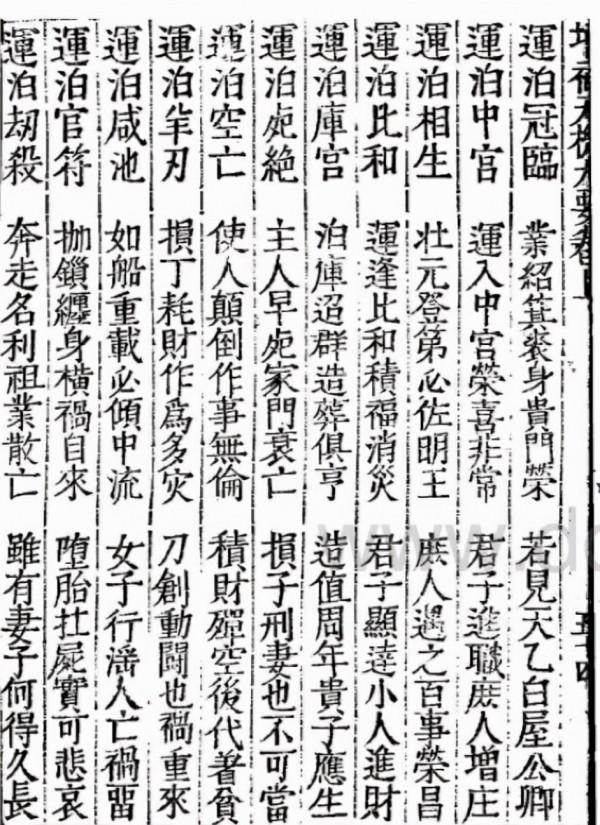 運泊冠臨 業紹箕裘身貴門榮 若見天乙白屋公卿
運泊中宮 運入中宮榮喜非常 君子進職庶人增庄
運泊相生 壯元登第必佐明王 庶人遇之百事榮昌
運泊比和 運逢比和積福消災 君子顯達小人進財
運泊庫宮 泊庫迢群造葬俱亨 造值周年貴子應生
運泊死絶 主人早死家門衰亡 損子刑妻也不可當
運泊空亡 使人顛倒作事無倫 積財殫空後代著貧
運泊羊刃 損丁耗財作爲多灾 刀創動鬪也禍重來
運泊咸池 如船重載必傾中流 女子行淫人亡禍留
運泊官符 枷鎖纏身橫禍自來 墮胎扛屍實可悲哀
運泊劫殺 奔走名利祖業散亡 雖有妻子何得久長
www.d